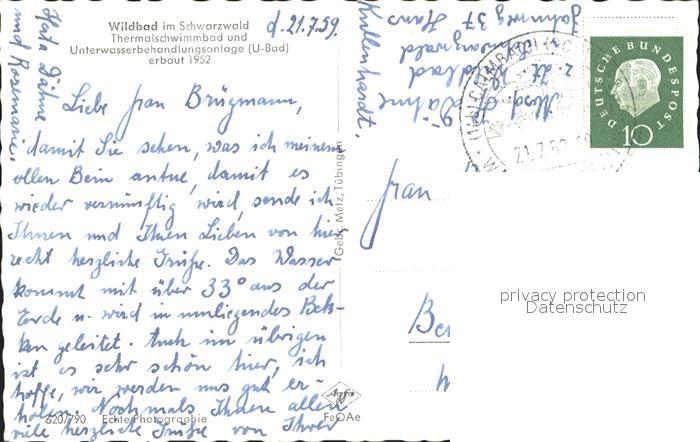 Wildbad im Schwarzwald
Thermalschwimmbad und
Unterwasserbehandlungsanlage (U-Bad)
erbaut 1952
d. 21.7.59.
Liebe Frau Brügmann,
damit Sie sehen, was ich meinem
ollen Bein antue, damit es
wieder vernünftig wird, sende ich
Ihnen und Ihren Lieben von hier
recht herzliche Grüße. Das Wasser
kommt mit über 33° aus der
Erde u. wird in umliegendes Bek-
ken geleitet. Auch im übrigen
ist es sehr schön hier, ich
hoffe, wir werden uns gut er-
holen. Nochmals Ihnen allen
viele herzliche Grüße von Ihrer
Herta Dähne
und Rosemarie.
620/790 Echte Photographie
Gebr. Metz, Tübingen
Agfa
FeOAe
Dähne
z. Zt. Wildbad
Hans
Frau
DEUTSCHE BUNDESPOST
10
21.7.59
privacy protection
Datenschutz